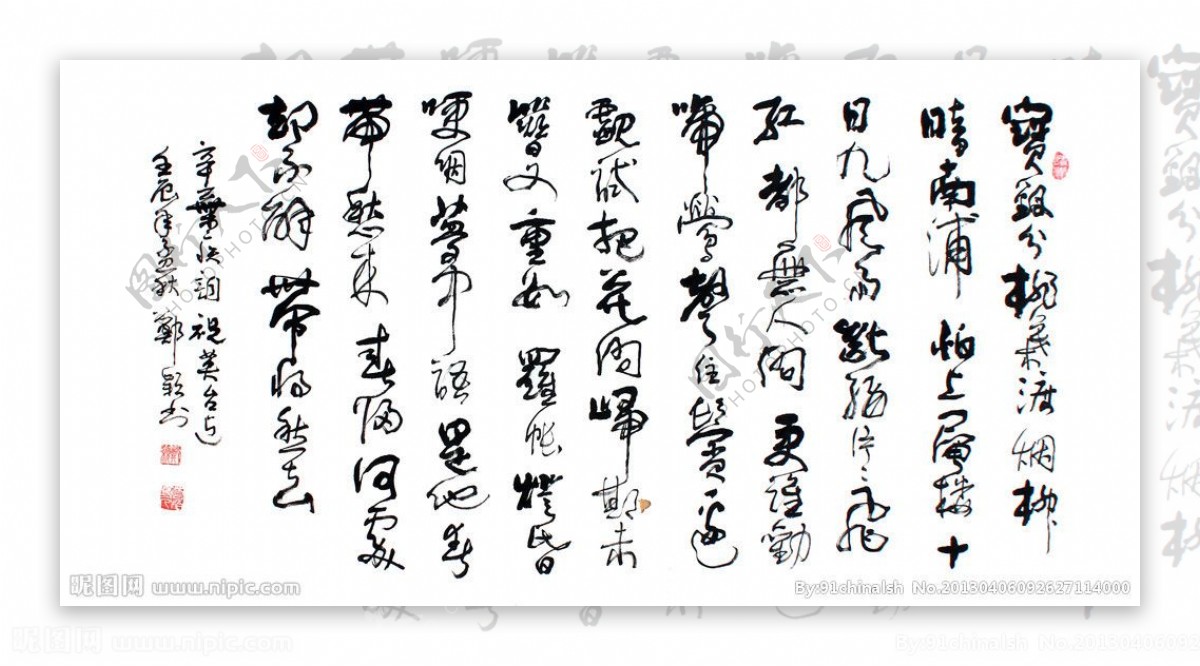 寶釵分桃葉渡烟柳
暗南浦怕上層樓十
日九風雨斷腸片片飛
紅都無人問更誰勸
啼鶯聲住鬢邊
覷試把花問歸期未
簪又重數羅帳燈昏
哽咽夢中語是他春
帶愁來春歸何處
却不解帶將愁去
辛棄疾詞祝英台近
壬辰年孟秋鄭穎書
昵图网 www.nipic.com
By:91chinalsh No.20130406092627114000